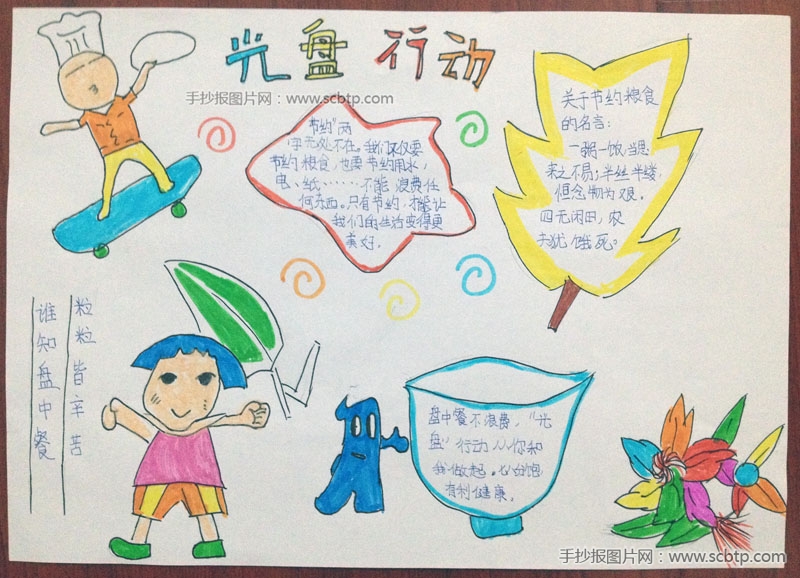 光盘行动
手抄报图片网：www.scbtp.com
节约"两
字无处不在。我们不仅要
节约粮食，也要节约用水，
电、纸……不能浪费任
何东西。只有节约，才能让
我们的生活变得更
美好。
关于节约粮食
的名言：
一粥一饭，当思
来之不易；半丝半缕，
但念物为艰。
四无闲田，农
夫犹饿死。
谁知盘中餐
粒粒皆辛苦
盘中餐不浪费，“光
盘”行动从你和
我做起。饱
有利健康。
手抄报图片网：www.scbtp.com